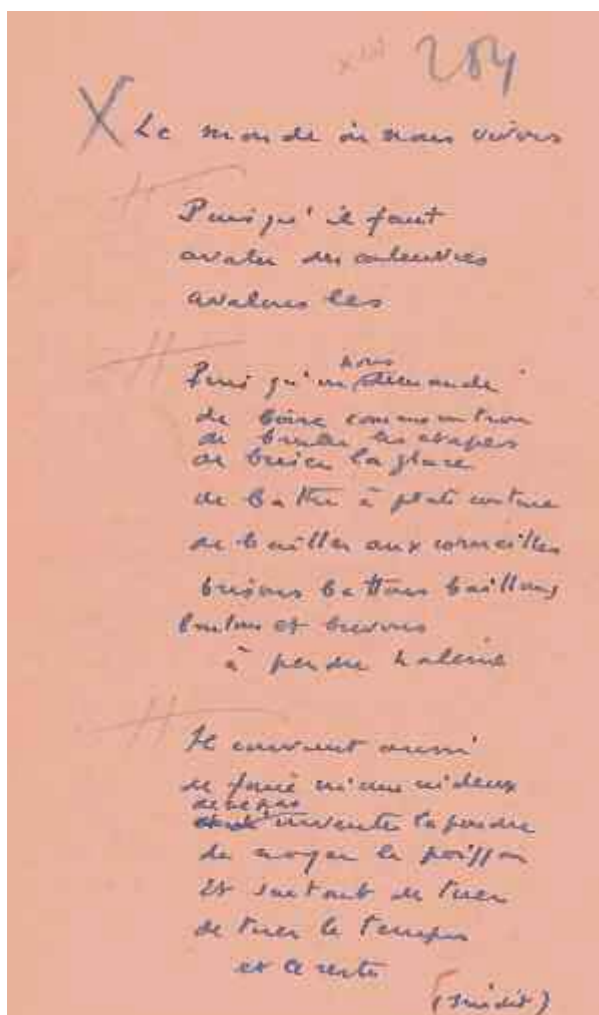 284
X Le monde où nous vivons
Puisqu'il faut
avaler des couleuvres
avalons les
nous
Puisqu'on demande
de boire comme un trou
de bruler les etapes
de briser la glace
de battre à plate couture
de bailler aux corneilles
brisons battons baillons
brulons et buvons
à perdre haleine
Il convient aussi
de faire ni une ni deux
de ne pas
inventer la poudre
de noyer le poisson
Et surtout de tuer
de tuer le temps
et le reste
(Inédit)